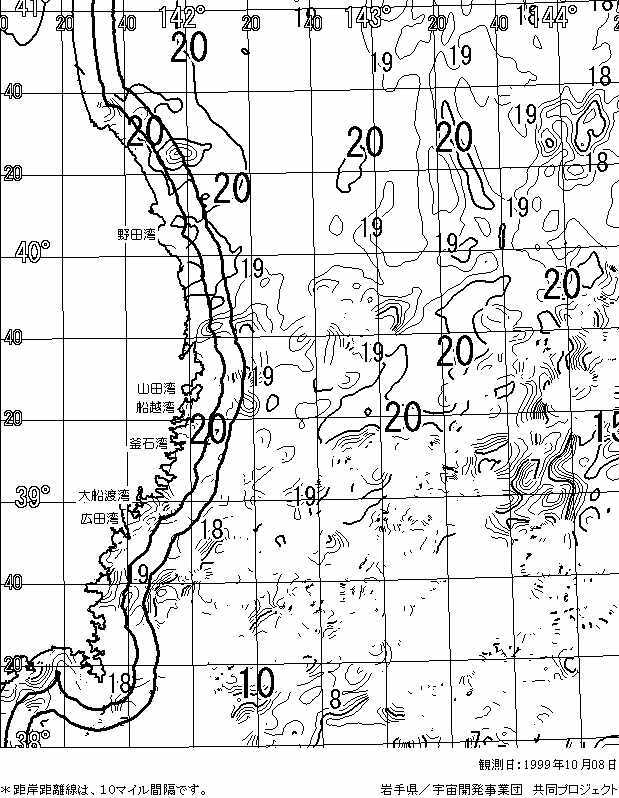 41° 20 40 142° 20 40 143° 20 40 144° 20
20 19 19 18
19 18
40
20 19
20 20
18
20
20
19
野田湾 19
19
40°
19
20
40
19 20
山田湾 19
船越湾 20
20
20 15
釜石湾
7
大船渡湾 19
39°
広田湾 18
19
40
20
18 10
8
38° 7
観測日:1999年10月08日
＊距岸距離線は、10マイル間隔です。 岩手県／宇宙開発事業団 共同プロジェクト